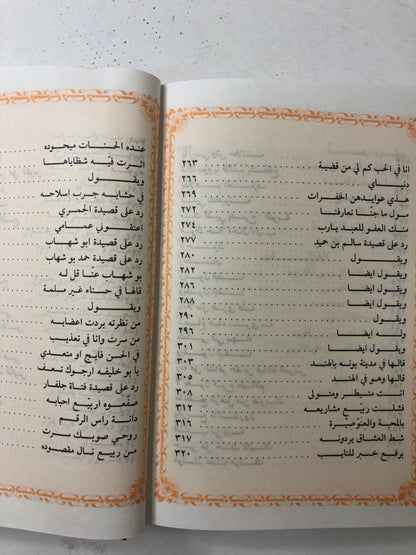 انا في الحب كم لي من قضية ٢٦٣
دنياي ٢٦٦
هذي عوايدهن الخفرات ٢٦٩
سول ما جتنا تعارفنا ٢٧٢
منك العفو للعبد يارب ٢٧٤
رد على قصيدة سالم بن حميد ٢٧٧
ويقول ٢٨٠
ويقول ايضا ٢٨٢
ويقول ايضا ٢٨٦
ويقول ايضا ٢٨٨
ويقول ٢٩٠
وله ايضا ٢٩٦
ويقول ايضا ٣٠١
قالها في مدينة بونه بالهند ٣٠٣
قالها وهو في الهند ٣٠٥
انت متيطر ومتولى ٣٠٨
فشلت ربيع مشاريعه ٣١٢
بالمحبة والعنوصيرة ٣١٦
شط العشاق يردونه ٣١٧
يرفع خبر للنايب ٣٢٠
عنده الحسنات ميحوده
اثرت فيه شظاياها
ويقول
في حشايه جرب اسلاحه
رد على قصيدة الجمري
اعتقوني عمامي
رد على قصيدة ابو شهاب
رد على قصيدة حمد بو شهاب
بو شهاب عنا قل له
قالها في حسناء غير مسلمة
ويقول
من نظرته بردت اعضايه
من سرت وانا في تعذيب
في الحسن فايج او متعدي
يا بو خليفه ارجوك تسعف
رد على قصيدة فتاة جلفار
صفوه اربيع احبابه
دانة راس الرقم
روحي صوبك سرت
من ربيع نال مقصوده